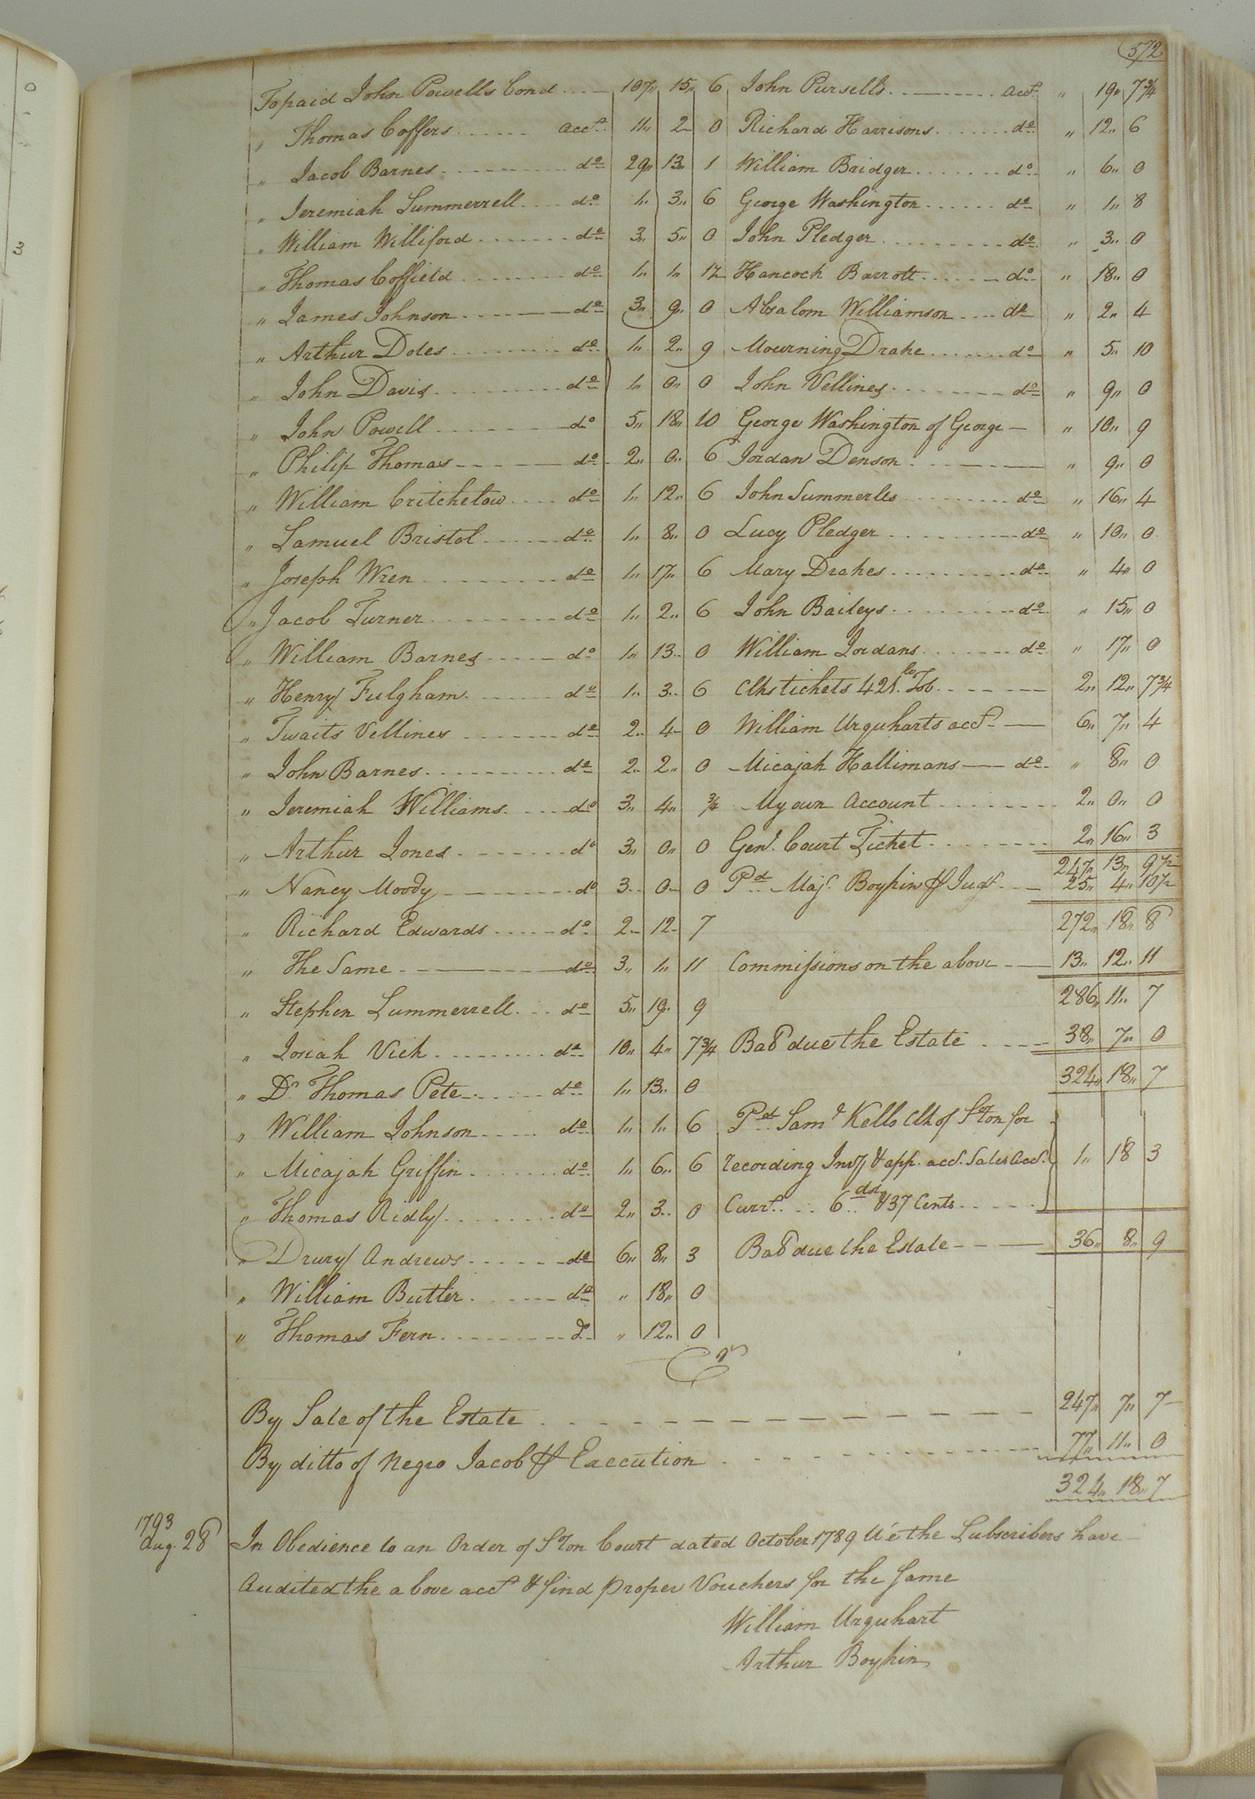 572
To paid John Powells Bond 107,, 15,, 6
,, Thomas Coffers acct. 11,, 2 0
,, Jacob Barnes do. 29,, 13,, 1
,, Jeremiah Summerrell do. 1,, 3,, 6
,, William Williford do. 3,, 5,, 0
,, Thomas Coffield do. 1,, 1,,
,, James Johnson do. 3,, 9,, 0
,, Arthur Doles do. 1,, 2,, 9
,, John Davis do. 1,, 0,, 0
,, John Powell do. 5,, 18,, 10
,, Philip Thomas do. 2,, 0,, 6
,, William Critchelow do. 1,, 12,, 6
,, Samuel Bristol do. 1,, 8,, 0
,, Joseph Wren do. 1,, 17,, 6
,, Jacob Turner do. 1,, 2,, 6
,, William Barnes do. 1,, 13,, 0
,, Henry Fulgham do. 1,, 3,, 6
,, Twaits Vellines do. 2,, 4 0
,, John Barnes do. 2,, 2,, 0
,, Jeremiah Williams do. 3,, 4,, ¾
,, Arthur Jones do. 3,, 0,, 0
,, Nancy Moody do. 3 0 0
,, Richard Edwards do. 2 12 7
,, The Same do. 3,, 1,, 11
,, Stephen Summerrell do. 5,, 19,, 9
,, Josiah Vick do. 10,, 4,, 7¾
,, Dr. Thomas Pete do. 1,, 13,, 0
,, William Johnson do. 1,, 1,, 6
,, Micajah Griffin do. 1,, 6,, 6
,, Thomas Ridly do. 2,, 3,, 0
,, Drury Andrews do. 6,, 8,, 3
,, William Butler do. ,, 18,, 0
,, Thomas Fern ,, 12,, 0
John Pursells acct. ,, 19,, 7¾
Richard Harrisons do. ,, 12,, 6
William Bridger do. ,, 6,, 0
George Washington do. ,, 1,, 8
John Pledger do. ,, 3,, 0
Hancock Barrott do. ,, 18,, 0
Absalom Williamson do. ,, 2,, 4
Mourning Drake do. ,, 5,, 10
John Vellines do. ,, 9,, 0
George Washington of George ,, 10,, 9
Jordan Denson ,, 9,, 0
John Summerles do. ,, 16,, 4
Lucy Pledger do. ,, 10,, 0
Mary Drakes do. ,, 4,, 0
John Baileys do. ,, 15,, 0
William Jordans do. ,, 17,, 0
Clks tickets 421. lb Tob. 2,, 12,, 7¾
William Urquharts acct. 6,, 7,, 4
Micajah Hallimans do. ,, 8,, 0
My own Account 2,, 0,, 0
Genl. Court Ticket 2,, 16,, 3
247,, 13,, 9½
Pd. Maj. Boykin 25,, 4,, 10½
272,, 18,, 8
Commissions on the above 13,, 12,, 11
286,, 11,, 7
Bal due the Estate 38,, 7,, 0
324,, 18,, 7
Pd. Saml. Kello Clk of S'ton for
recording Invy. & app. acct. Sales acct. 1,, 18 3
Currt. 6 dol & 37 Cents
Bal due the Estate 36,, 8,, 9
Cr
By Sale of the Estate 247,, 7,, 7
By ditto of Negro Jacob Execution 77,, 11,, 0
324,, 18,, 7
1793
Aug. 28 In Obedience to an Order of S'ton Court dated October 1789 We the Subscribers have
Audited the above acct. & find proper Vouchers for the Same
William Urquhart
Arthur Boykin